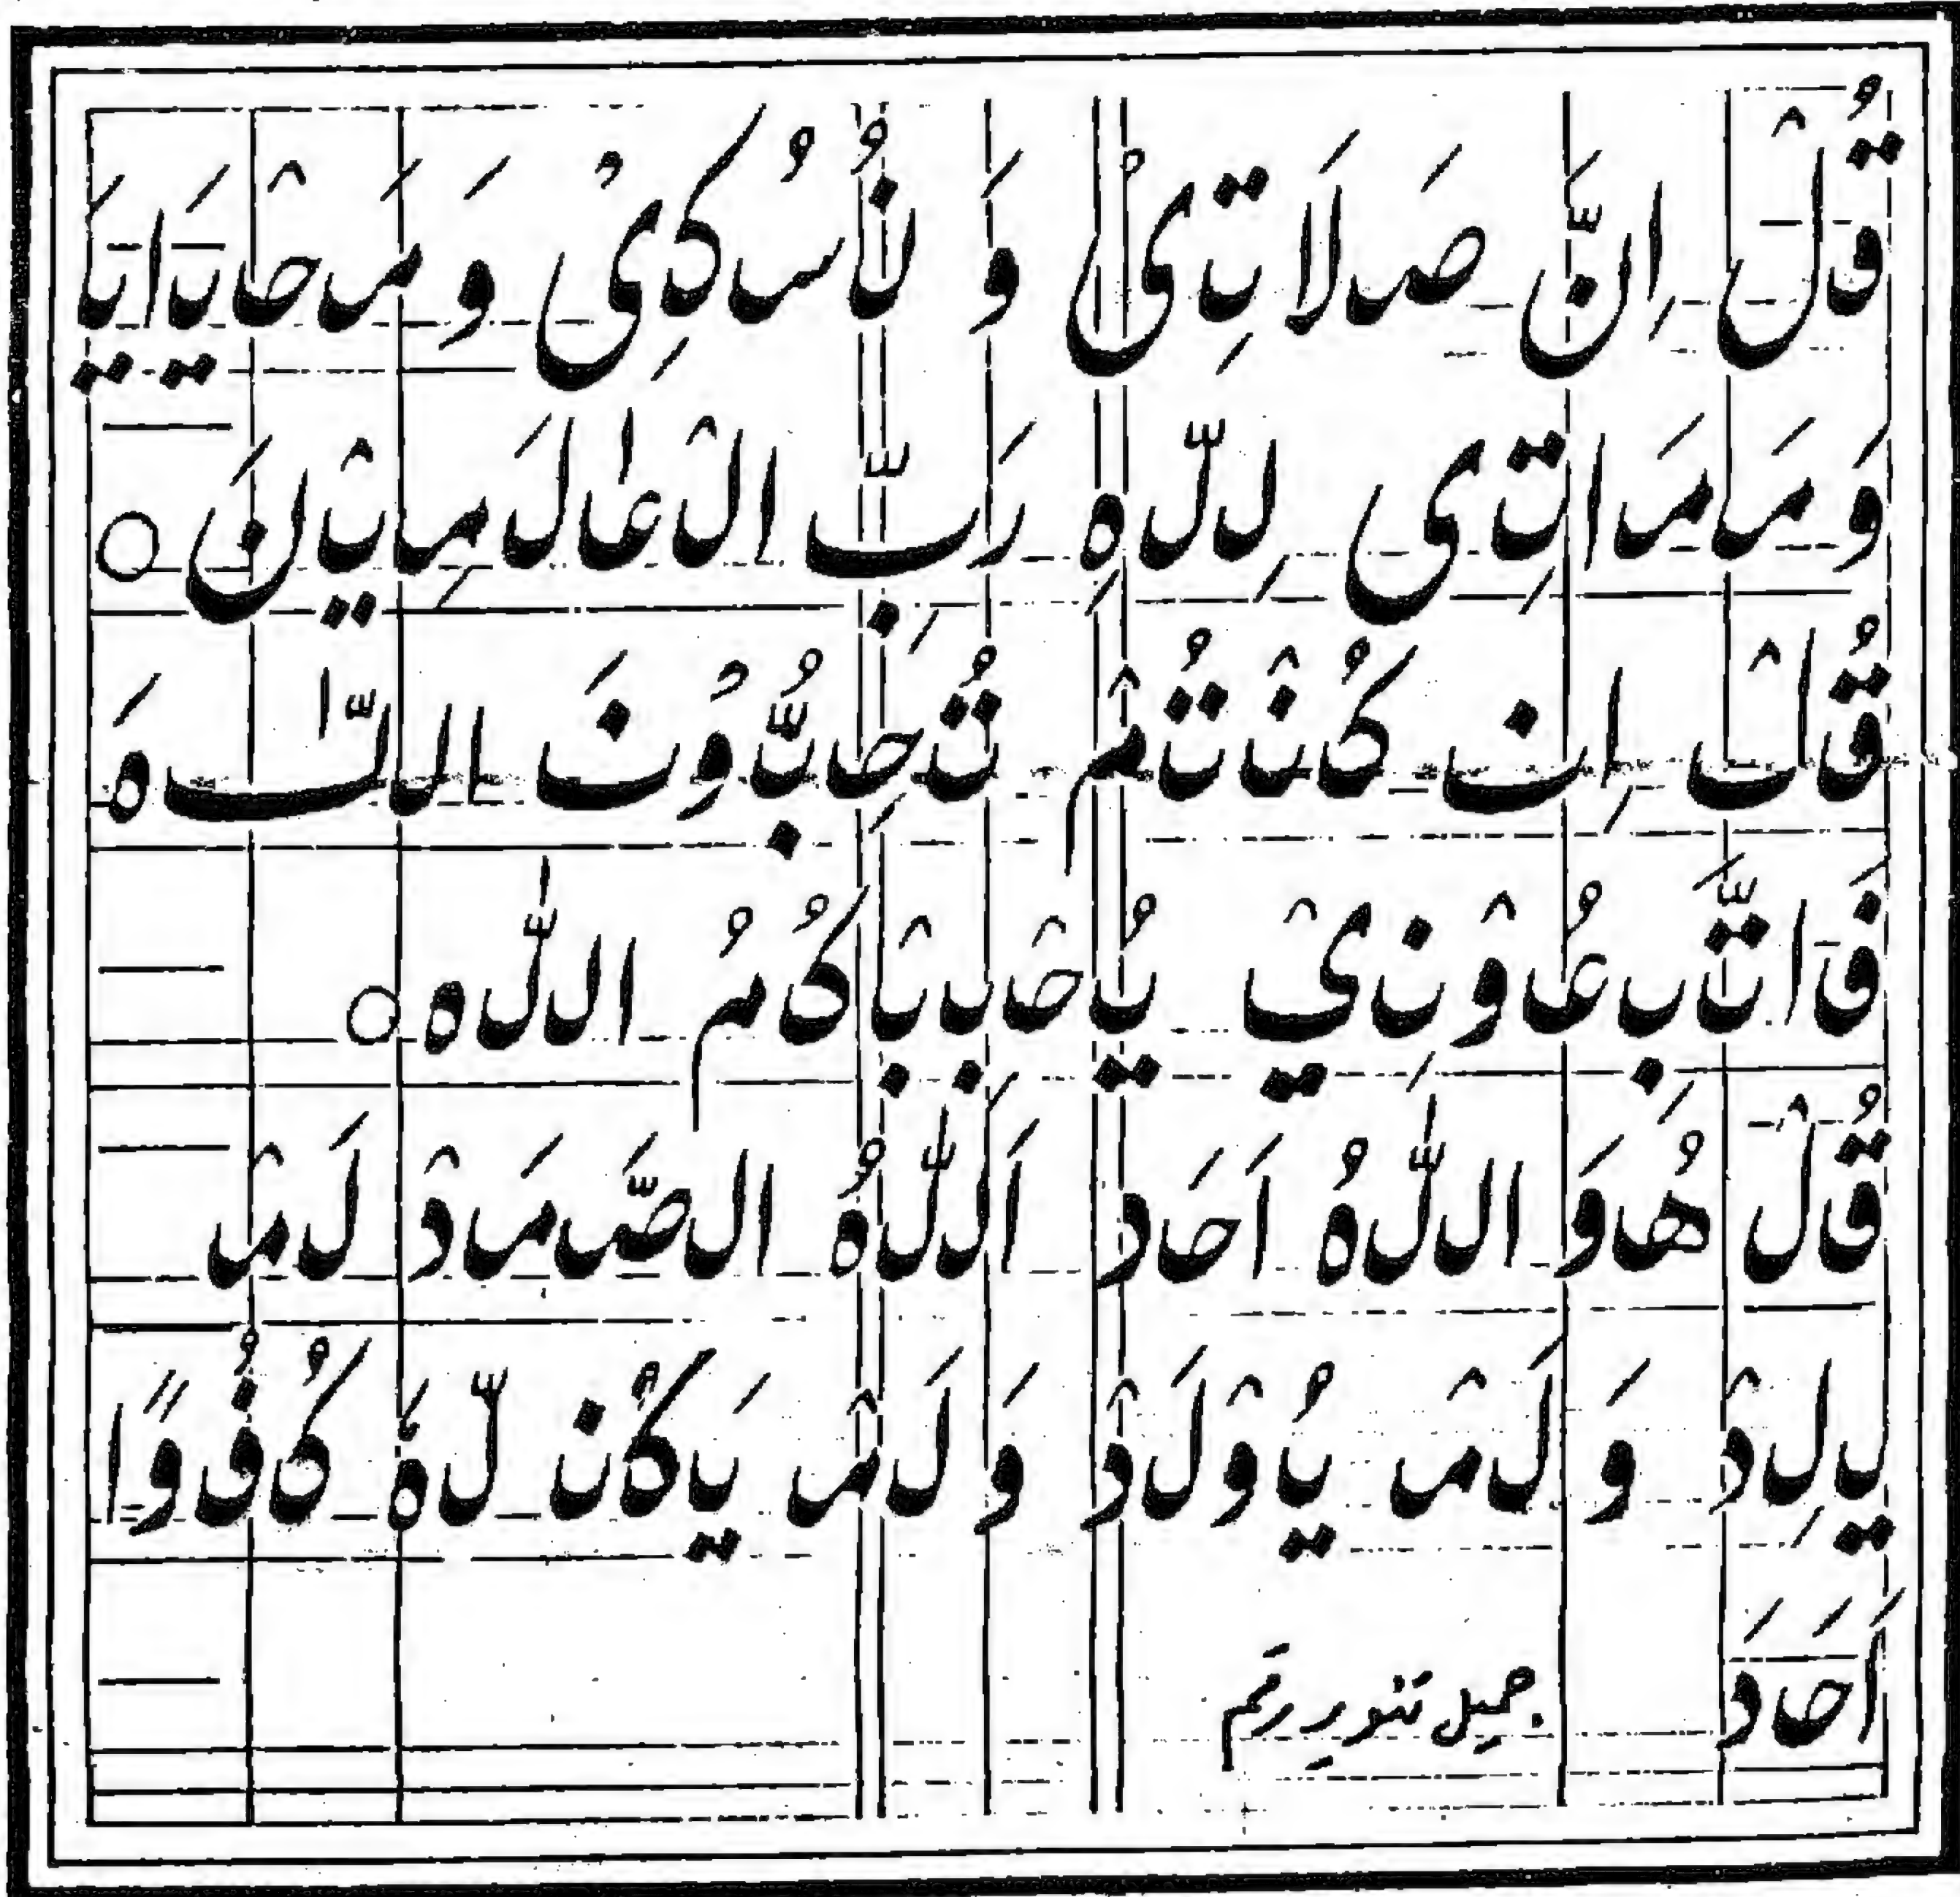 قُلْ اِنَّ صَلَاتِیْ وَ نُسُکِیْ وَ مَحْیَایَ
وَ مَمَاتِی لِلّٰهِ رَبِّ الْعٰالَمِیْنَ ○
قُلْ اِن کُنْتُمْ تُحِبُّوْنَ اللّٰهَ
فَاتَّبِعُوْنِيْ یُحْبِبْکُمُ اللّٰه ○
قُلْ هُوَ اللّٰهُ اَحَد اَللّٰهُ الصَّمَدْ لَمْ
یَلِدْ وَ لَمْ یُوْلَدْ وَ لَمْ یَکُنْ لَّهٗ کُفُوًا
اَحَدَ
جمیل تنویر رقم